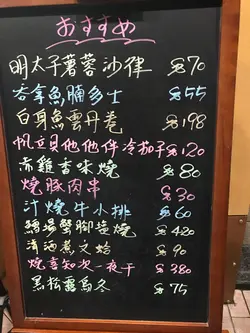 おすすめ
明太子薯蓉沙律 $70
吞拿魚腩多士 $55
白身魚雲丹卷 $198
帆立貝他他伴冷茄子 $120
赤雞香味燒 $80
燒豚肉串 $30
汁燒牛小排 $60
鱈場蟹腳鹽燒 $420
清酒煮之蛤 $90
燒喜知次一夜干 $380
黑松露烏冬 $75